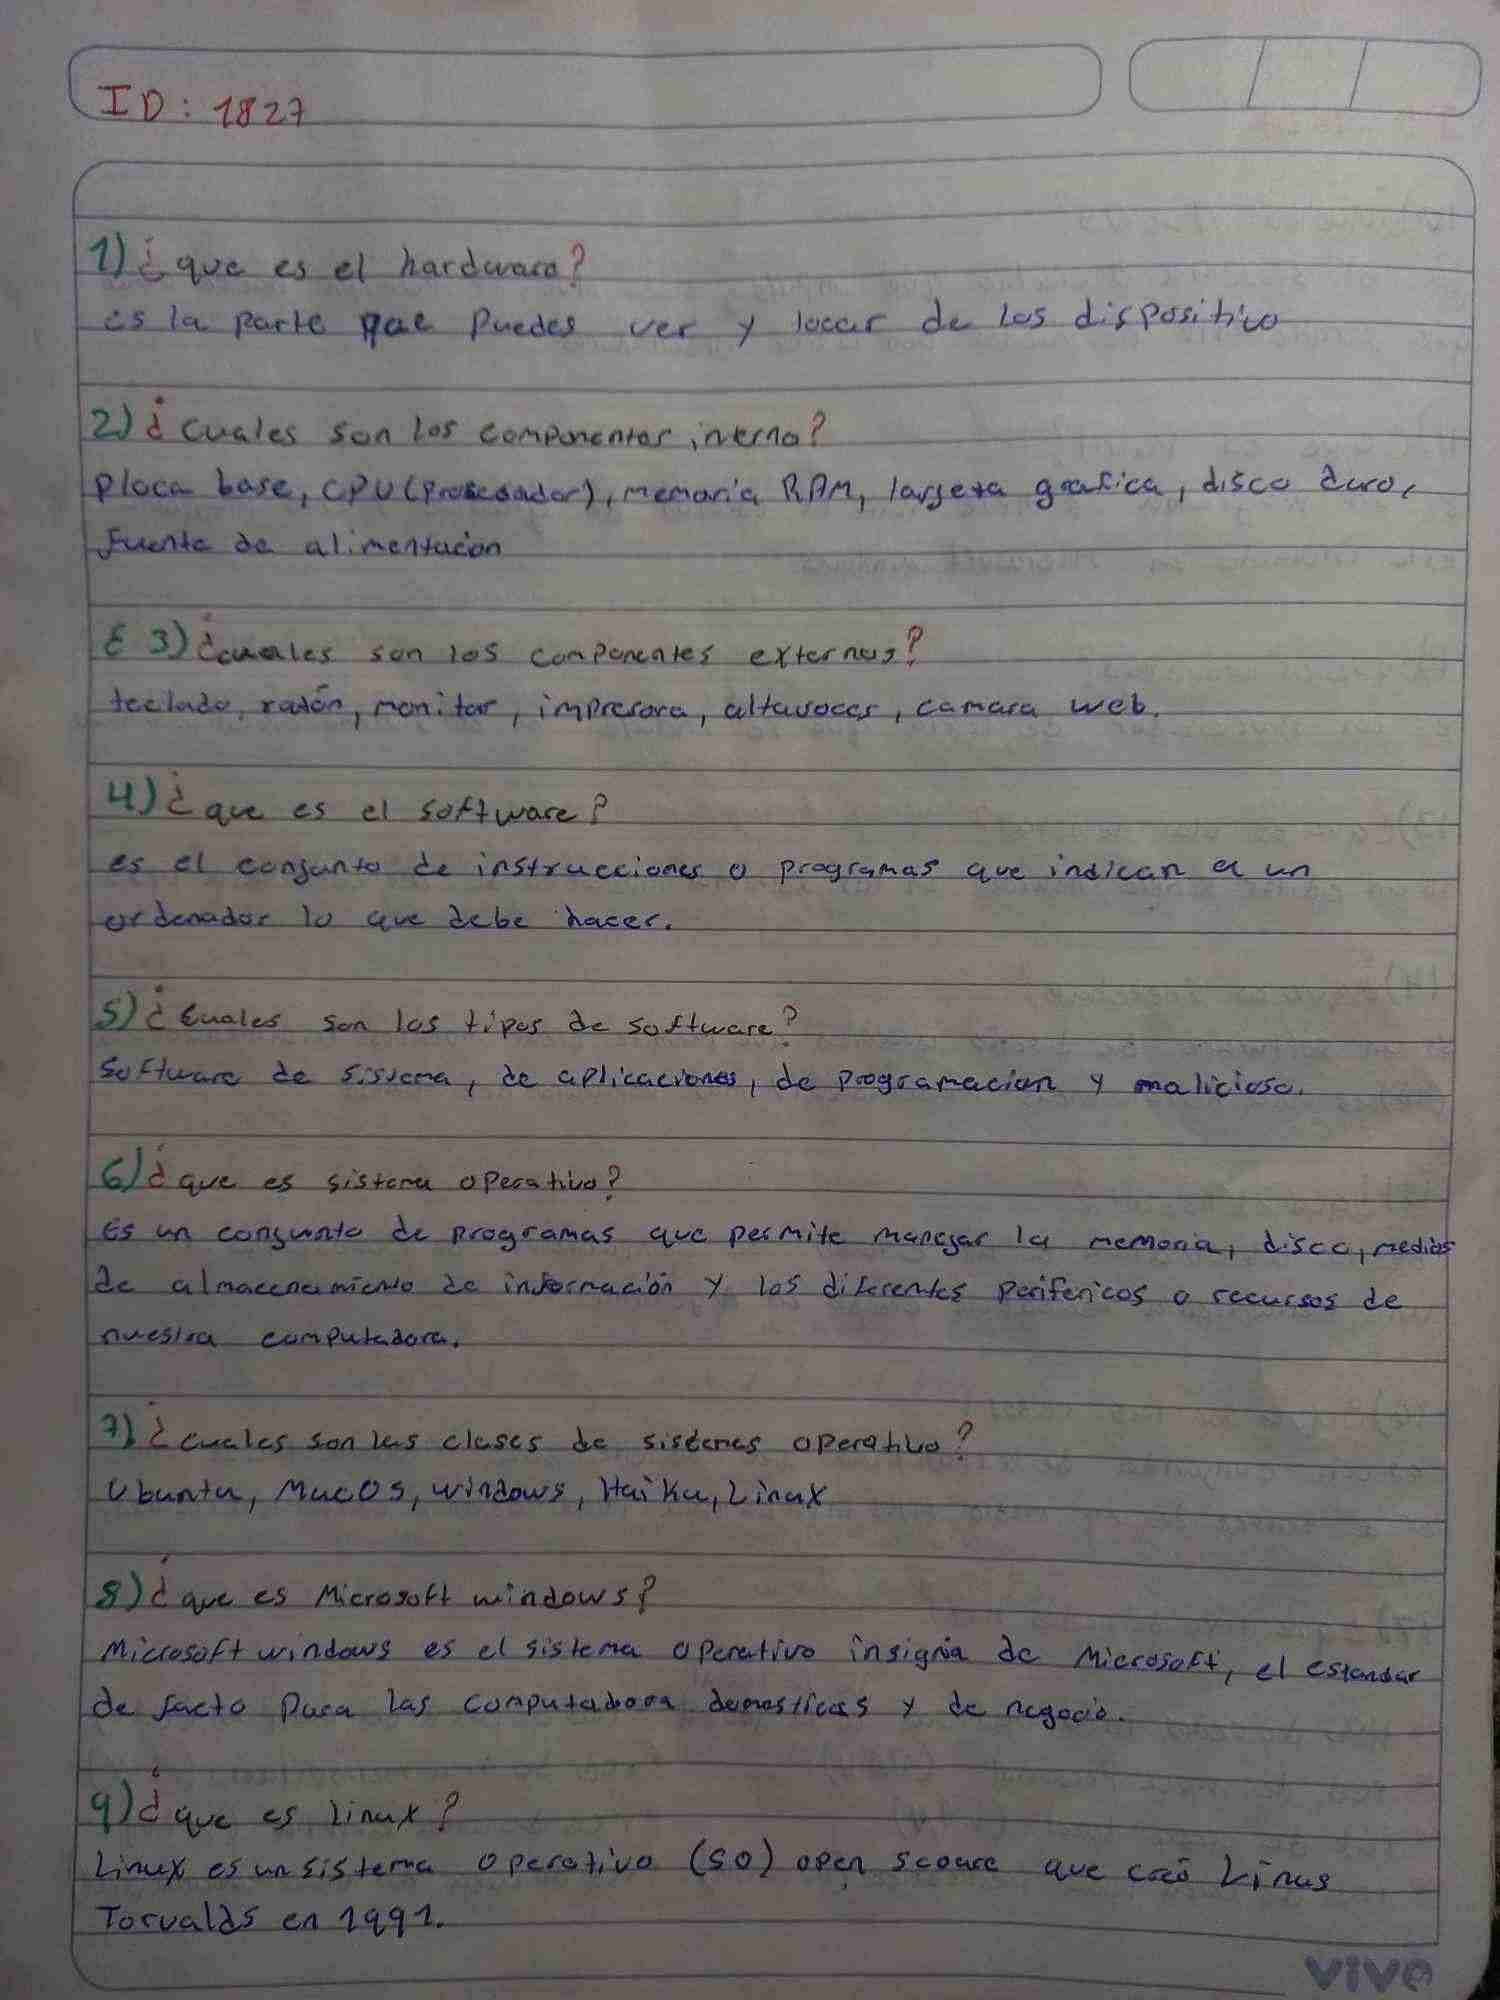 ID: 1827
1) ¿que es el hardware?
es la parte que puedes ver y tocar de los dispositivo
2) ¿cuales son los componentes interno?
placa base, CPU (procesador), memoria RAM, tarjeta grafica, disco duro,
fuente de alimentacion
3) ¿cuales son los componentes externos?
teclado, ratón, monitor, impresora, altavoces, camara web.
4) ¿que es el software?
es el conjunto de instrucciones o programas que indican a un
ordenador lo que debe hacer.
5) ¿cuales son los tipos de software?
Software de sistema, de aplicaciones, de programacion y malicioso.
6) ¿que es sistema operativo?
Es un conjunto de programas que permite manejar la memoria, disco, medios
de almacenamiento de información y los diferentes perifericos o recursos de
nuestra computadora.
7) ¿cuales son las clases de sistemas operativo?
Ubuntu, MacOS, windows, Haiku, Linux
8) ¿que es Microsoft windows?
Microsoft windows es el sistema operativo insignia de Microsoft, el estandar
de facto para las computadora domesticas y de negocio.
9) ¿que es linux?
Linux es un sistema operativo (SO) open scource que creó Linus
Torvalds en 1991.
vivo